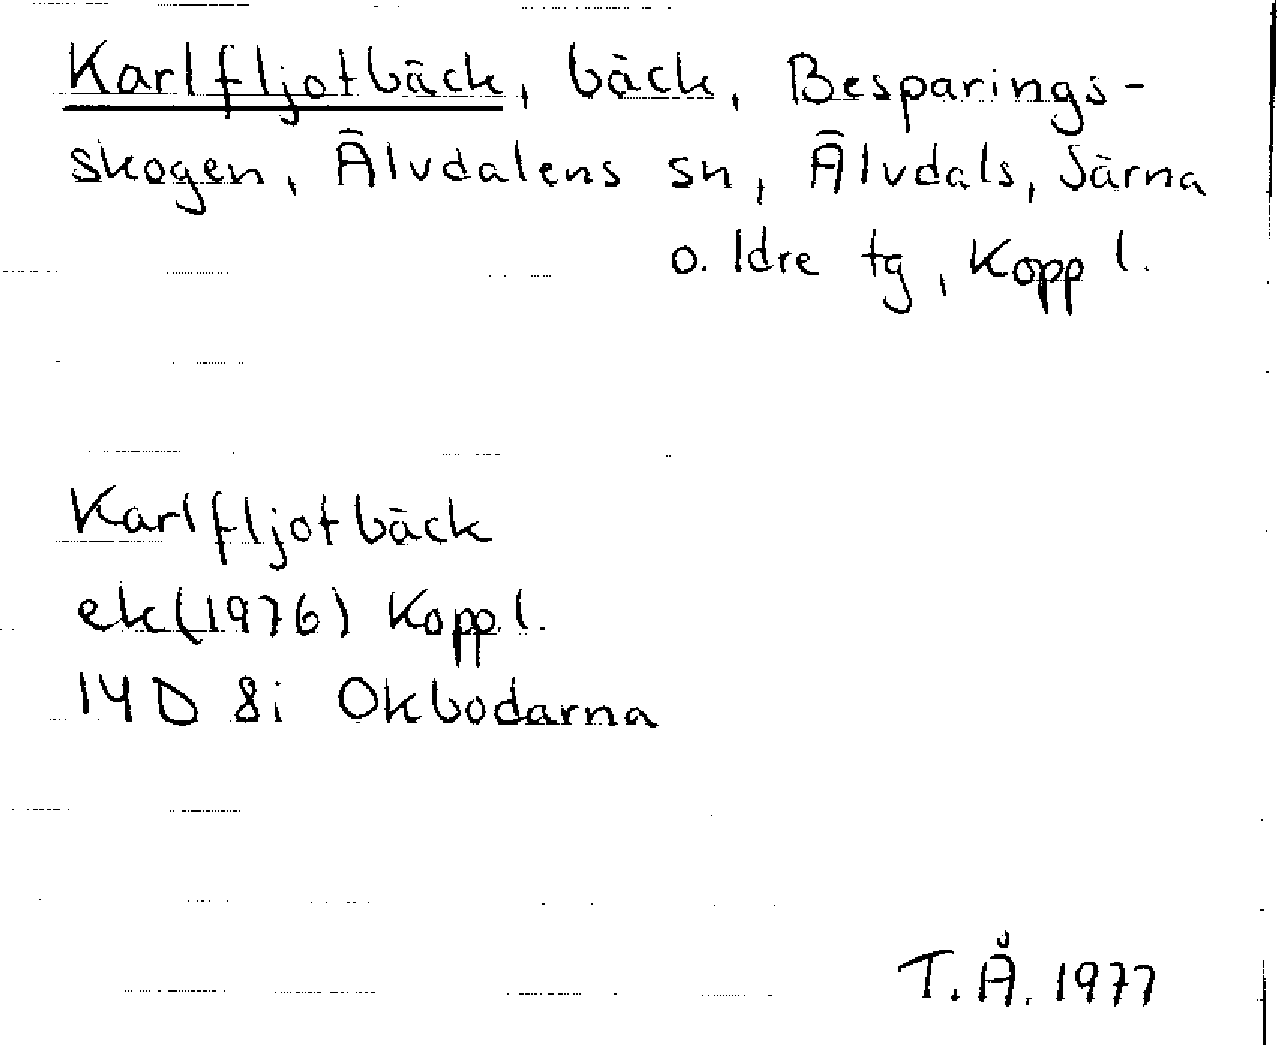 Karlfljotbäck, bäck, Besparings-
skogen, Älvdalens sn, Älvdals, Särna
o. Idre tg, Kopp l.
Karlfljotbäck
ek (1976) Kopp l.
14D 8i Okbodarna
T.Å. 1977